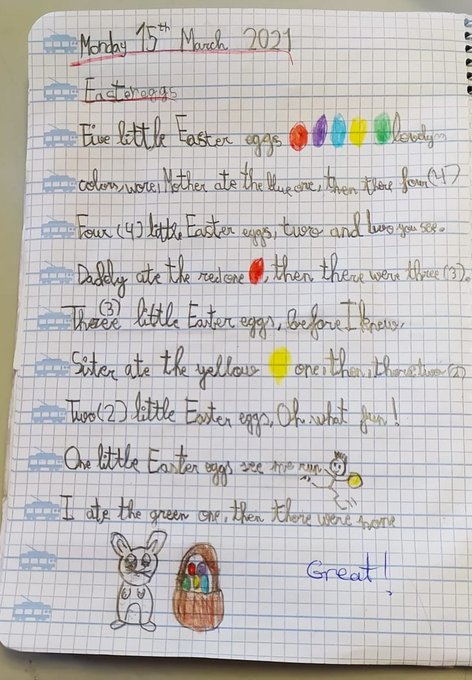 Monday 15th March 2021
Easter eggs
Five little Easter eggs lovely
colors, wore, Mother ate the blue one, then there four (4)
Four (4) little Easter eggs, two and two you see.
Daddy ate the red one, then there were three (3).
Three (3) little Easter eggs, before I knew,
Sister ate the yellow one, then, there two (2)
Two (2) little Easter eggs, Oh what fun!
One little Easter eggs see me run
I ate the green one, then there were none
Great!